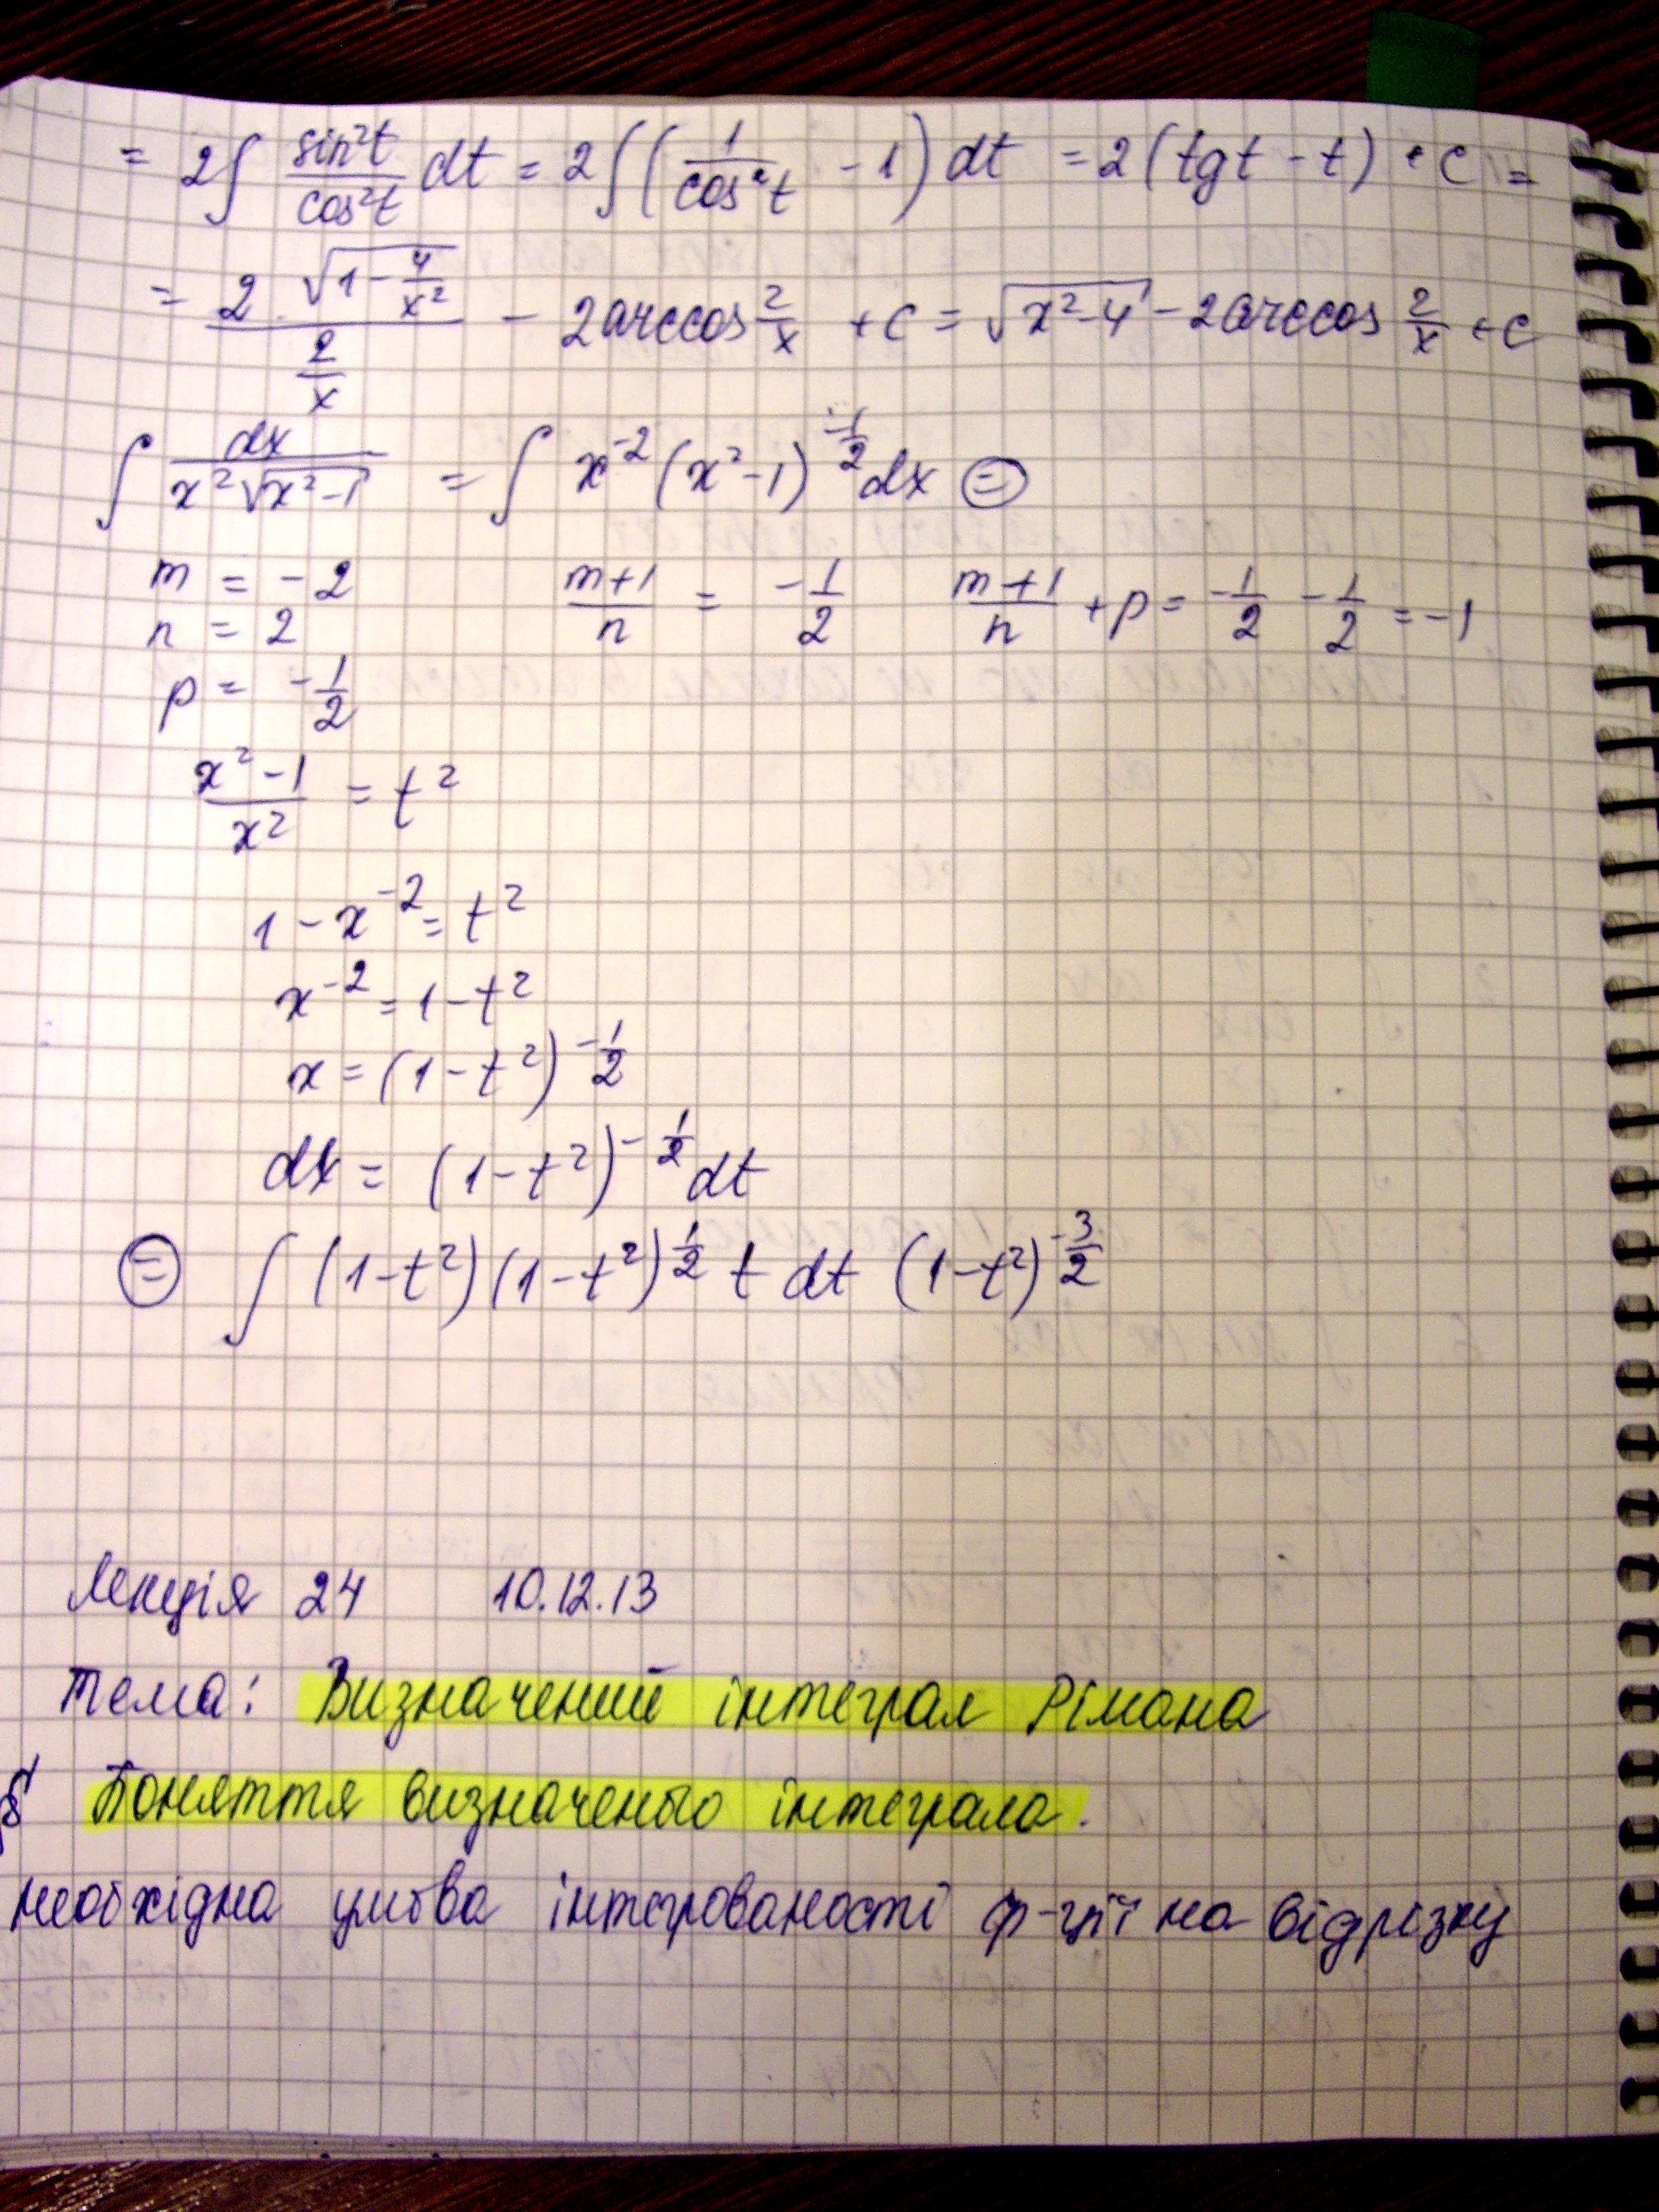 = 2∫ sin²t/cos²t dt = 2∫(1/cos²t - 1) dt = 2(tgt - t) + c =
= 2·√(1 - 4/x²) / (2/x) - 2arccos 2/x + c = √(x²-4) - 2arccos 2/x + c
∫ dx/(x²√(x²-1)) = ∫ x⁻² (x²-1)^(-1/2) dx ⊜
m = -2 (m+1)/n = -1/2 (m+1)/n + p = -1/2 - 1/2 = -1
n = 2
p = -1/2
(x²-1)/x² = t²
1 - x⁻² = t²
x⁻² = 1 - t²
x = (1-t²)^(-1/2)
dx = (1-t²)^(-1/2) dt
⊜ ∫ (1-t²)(1-t²)^(1/2) t dt (1-t²)^(-3/2)
Лекція 24 10.12.13
Тема: Визначений інтеграл Рімана
§ Поняття визначеного інтеграла.
необхідна умова інтегрованості ф-ції на відрізку